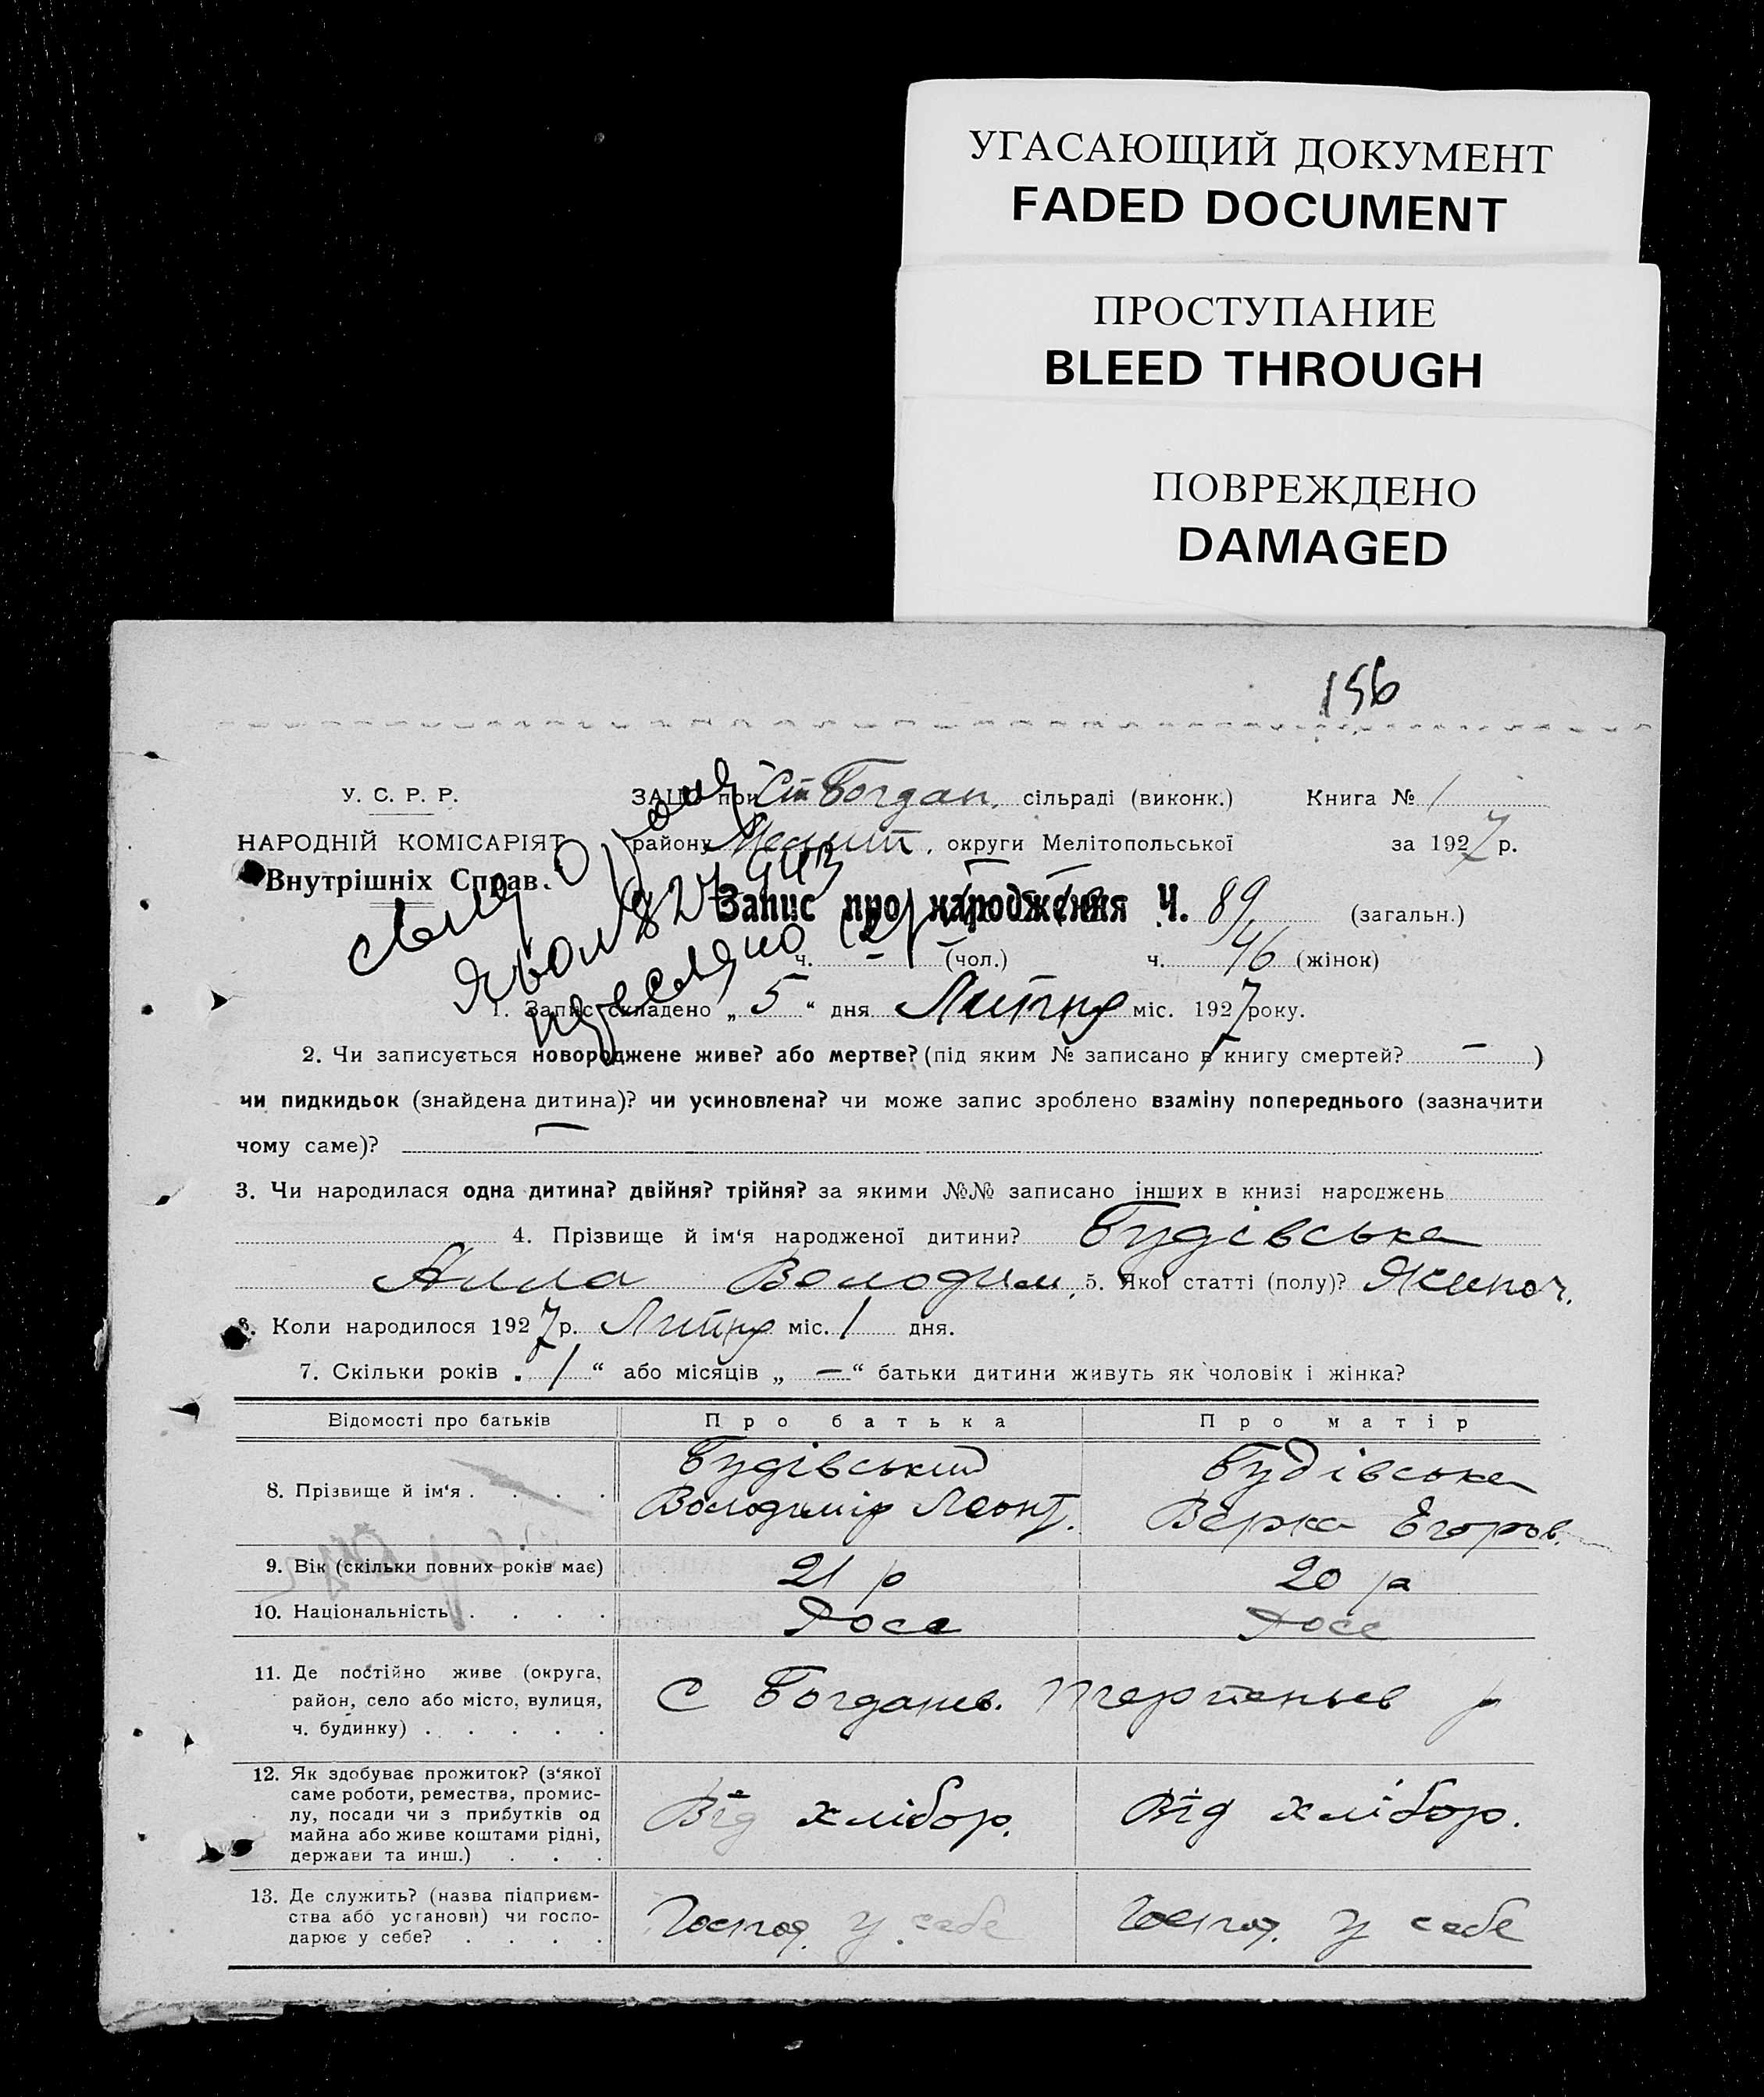 УГАСАЮЩИЙ ДОКУМЕНТ
FADED DOCUMENT
ПРОСТУПАНИЕ
BLEED THROUGH
ПОВРЕЖДЕНО
DAMAGED
156
У. С. Р. Р.
НАРОДНІЙ КОМІСАРІЯТ
Внутрішніх Справ.
ЗАЦС при Ст Богдан. сільраді (виконк.) Книга № 1
району Меліт, округи Мелітопольської за 1927 р.
Запис про народження Ч. 89 (загальн.)
ч. – (чол.) ч. 46 (жінок)
1. Запис складено „ 5 “ дня Липня міс. 1927 року.
2. Чи записується новороджене живе? або мертве? (під яким № записано в книгу смертей? – )
чи пидкидьок (знайдена дитина)? чи усиновлена? чи може запис зроблено взаміну попереднього (зазначити
чому саме)? –
3. Чи народилася одна дитина? двійня? трійня? за якими №№ записано інших в книзі народжень
4. Прізвище й ім‘я народженої дитини? Будівська
Алла Володим. 5. Якої статті (полу)? Жіноч.
6. Коли народилося 1927 р. Липня міс. 1 дня.
7. Скільки років „ 1 “ або місяців „ – “ батьки дитини живуть як чоловік і жінка?
Відомості про батьків Про батька Про матір
8. Прізвище й ім‘я . . . . Будівський Володимір Леонт. Будівська Вєрка Егоров.
9. Вік (скільки повних років має) 21 р 20 р
10. Національність . . . . Росс Росс
11. Де постійно живе (округа,
район, село або місто, вулиця,
ч. будинку) . . . . .
С Богданів. Терпеньев р
12. Як здобуває прожиток? (з‘якої
саме роботи, ремества, промис-
лу, посади чи з прибутків од
майна або живе коштами рідні,
держави та инш.) . . .
Від хлібор. Від хлібор.
13. Де служить? (назва підприєм-
ства або установи) чи госпо-
дарює у себе? . . . .
Господ. у себе Господ. у себе